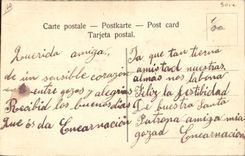 Carte postale – Postkarte – Post card
Tarjeta postal.
Querida amiga,
de un sensible corazón
entre gozos y alegrias
Recibid los buenos dias
Que os da Encarnación
Ya que tan tierna
amistad nuestras
almas nos labona
Feliz la festividad
De vuestra Santa
Patrona amiga mia
gozad Encarnación